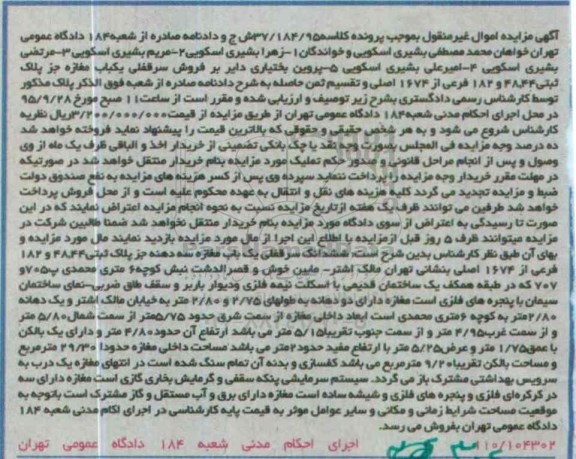 آگهی مزایده اموال غیرمنقول بموجب پرونده کلاسه۳۷/۱۸۴/۹۵ش ج و دادنامه صادره از شعبه۱۸۴ دادگاه عمومی
تهران خواهان محمد مصطفی بشیری اسکویی و خواندگان ۱-زهرا بشیری اسکویی۲-مریم بشیری اسکویی۳-مرتضی
بشیری اسکویی ۴-امیرعلی بشیری اسکویی ۵-پروین بختیاری دایر بر فروش سرقفلی یکباب مغازه جز پلاک
ثبتی۴۸،۴۴ و ۱۸۲ فرعی از ۱۶۷۴ اصلی و تقسیم ثمن حاصله به شرح دادنامه صادره از شعبه فوق الذکر پلاک مذکور
توسط کارشناس رسمی دادگستری بشرح زیر توصیف و ارزیابی شده و مقرر است از ساعت۱۱ صبح مورخ ۹۵/۹/۲۸
در محل اجرای احکام مدنی شعبه۱۸۴ دادگاه عمومی تهران از طریق مزایده از قیمت۳/۰۰۰/۰۰۰/۰۰۰ریال نظریه
کارشناس شروع می شود و به هر شخص حقیقی و حقوقی که بالاترین قیمت را پیشنهاد نماید فروخته خواهد شد
ده درصد وجه مزایده فی المجلس بصورت وجه نقد یا چک بانکی تضمینی از خریدار اخذ و الباقی ظرف یک ماه از وی
وصول و پس از انجام مراحل قانونی و صدور حکم تملیک مورد مزایده بنام خریدار منتقل خواهد شد در صورتیکه
در مهلت مقرر خریدار وجه مزایده را پرداخت ننماید سپرده وی پس از کسر هزینه های مزایده به نفع صندوق دولت
ضبط و مزایده تجدید می گردد کلیه هزینه های نقل و انتقال به عهده محکوم علیه است و از محل فروش پرداخت
خواهد شد طرفین می توانند ظرف یک هفته از تاریخ مزایده نسبت به نحوه انجام مزایده اعتراض نمایند که در این
صورت تا رسیدگی به اعتراض از سوی دادگاه مورد مزایده بنام خریدار منتقل نخواهد شد ضمنا طالبین شرکت در
مزایده میتوانند ظرف ۵ روز قبل از مزایده با اطلاع این اجرا از مال مورد مزایده بازدید نمایند مال مورد مزایده و
بهای آن طبق نظر کارشناس بدین شرح است ششدانگ سرقفلی یک باب مغازه سه دهنه جز پلاک ثبتی۴۸،۴۴ و ۱۸۲
فرعی از ۱۶۷۴ اصلی بنشانی تهران مالک اشتر- مابین خوش و قصرالدشت نبش کوچه۶ متری محمدی پ۷۰۵و
۷۰۷ که در طبقه همکف یک ساختمان قدیمی با اسکلت نیمه فلزی ودیوار باربر و سقف طاق ضربی-نمای ساختمان
سیمان با پنجره های فلزی است مغازه دارای دو دهانه به طولهای ۲/۷۵ و ۲/۸۰ متر به خیابان مالک اشتر و یک دهانه
۲/۸۰متر به کوچه ۶متری محمدی است ابعاد داخلی مغازه از سمت شرق حدود ۵/۷۵متر از سمت شمال۵/۸۰ متر
و از سمت غرب۴/۹۵ متر و از سمت جنوب تقریبا۵/۱۵ متر می باشد ارتفاع آن حدود۴/۸۰ متر و دارای یک بالکن
با عمق۱/۷۵ متر و عرض۵/۲۵ متر با ارتفاع مفید حدود۲متر می باشد مساحت داخلی مغازه حدودا ۲۹/۳۰ مترمربع
و مساحت بالکن تقریبا۹/۲۰ مترمربع می باشد کفسازی و بدنه آن تمام سنگ شده است در انتهای مغازه یک درب به
سرویس بهداشتی مشترک باز می گردد. سیستم سرمایشی پنکه سقفی و گرمایش بخاری گازی است مغازه دارای سه
در کرکره ای فلزی و پنجره های فلزی و شیشه ساده است مغازه دارای برق و آب مستقل و گاز مشترک است باتوجه به
موقعیت مساحت شرایط زمانی و مکانی و سایر عوامل موثر به قیمت پایه کارشناسی در اجرای احکام مدنی شعبه ۱۸۴
دادگاه عمومی تهران بفروش می رسد.
۱۱۰/۱۰۴۳۰۲ اجرای احکام مدنی شعبه ۱۸۴ دادگاه عمومی تهران